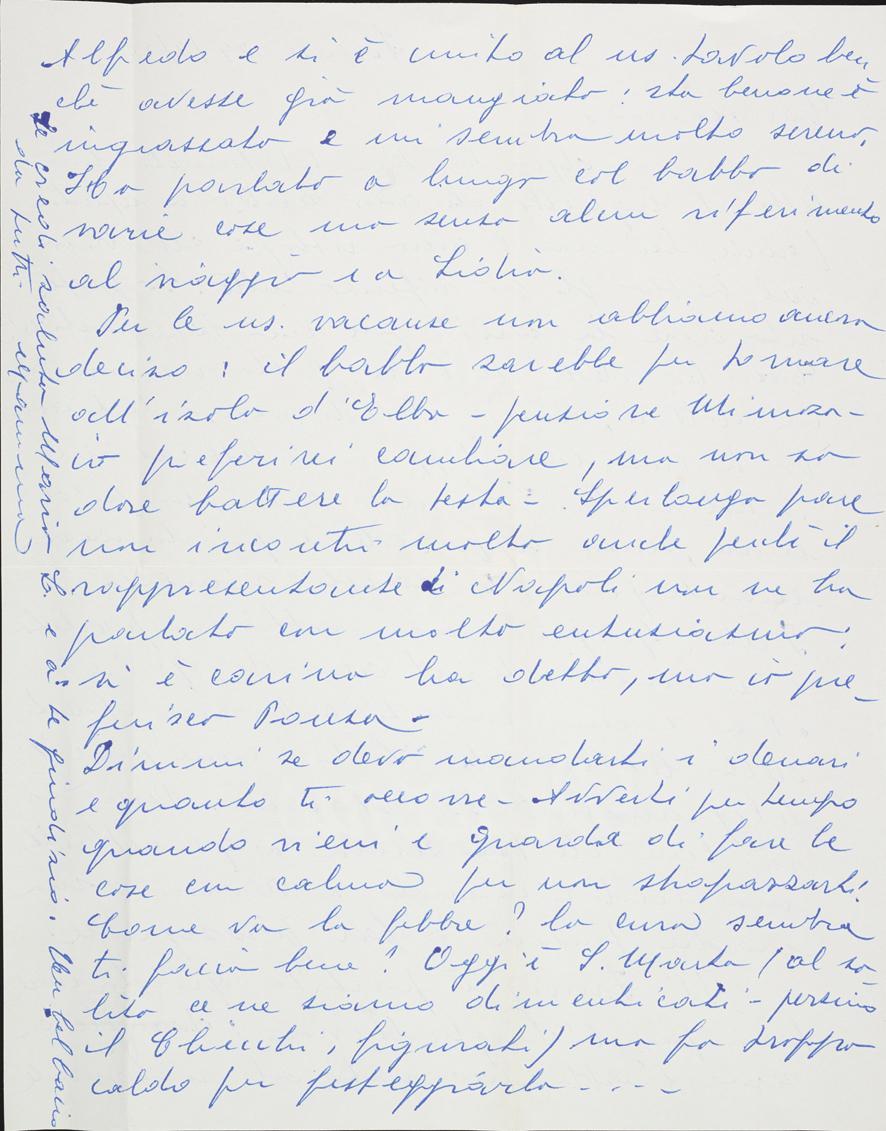 Alfredo e si è unito al ns. tavolo ben
chè avesse già mangiato: sta benone è
ingrassato e mi sembra molto sereno,
Ha parlato a lungo col babbo di
varie cose ma senza alcun riferimento
al viaggio e a Lidia.
Per le ns. vacanze non abbiamo ancora
deciso: il babbo sarebbe per tornare
all'isola d'Elba - pensione Mimosa -
io preferirei cambiare, ma non so
dove battere la testa - Sperlonga pare
non incontri molto anche perchè il
rappresentante di Napoli non ne ha
parlato con molto entusiasmo:
sì è carina ha detto, ma io pre_
ferisco Ponza -
Dimmi se devo mandarti i denari
e quanto ti occorre - Avverti per tempo
quando vieni e guarda di fare le
cose con calma per non strapazzarti!
Come va la febbre? la cura sembra
ti faccia bene? Oggi è S. Marta (al so
lito ce ne siamo dimenticati - persino
il Chicchi, figurati) ma fa troppo
caldo per festeggiarla - - - -
Se credi saluta Mario L. e a te giudizio. Un bel bacio
da tutti mamma